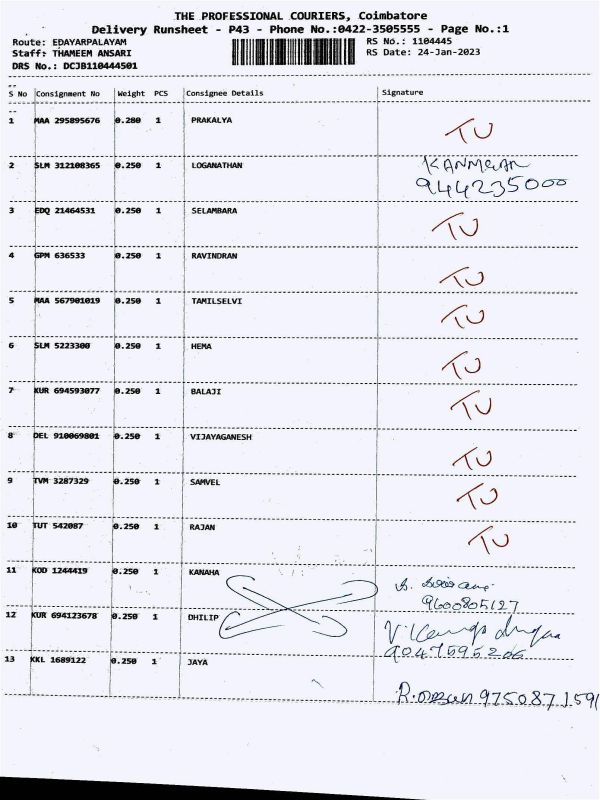 THE PROFESSIONAL COURIERS, Coimbatore
Delivery Runsheet - P43 - Phone No.:0422-3505555 - Page No.:1
Route: EDAYARPALAYAM RS No.: 1104445
Staff: THAMEEM ANSARI RS Date: 24-Jan-2023
DRS No.: DCJB110444501
S No Consignment No Weight PCS Consignee Details Signature
1 MAA 295895676 0.280 1 PRAKALYA TU
2 SLM 312108365 0.250 1 LOGANATHAN
944235000
3 EDQ 21464531 0.250 1 SELAMBARA TU
4 GPM 636533 0.250 1 RAVINDRAN TU
5 MAA 567901019 0.250 1 TAMILSELVI TU
6 SLM 5223300 0.250 1 HEMA TU
7 KUR 694593077 0.250 1 BALAJI TU
8 DEL 910069801 0.250 1 VIJAYAGANESH TU
9 TVM 3287329 0.250 1 SAMVEL TU
10 TUT 542087 0.250 1 RAJAN TU
11 KOD 1244419 0.250 1 KANAHA
9600805127
12 KUR 694123678 0.250 1 DHILIP
9047595206
13 KKL 1689122 0.250 1 JAYA
9750871591